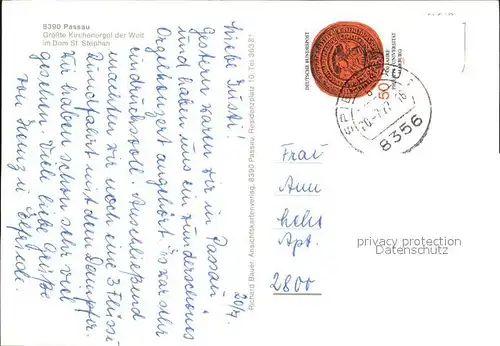 8390 Passau
Größte Kirchenorgel der Welt
im Dom St. Stephan
20/7.
Liebe Gusti!
Gestern waren wir in Passau
und haben uns ein wunderschönes
Orgelkonzert angehört. Es war sehr
eindrucksvoll. Anschließend
machten wir noch eine 3 Flüsse
Rundfahrt mit dem Dampfer.
Wir haben schon sehr viel
gesehen. Viele liebe Grüße
von Heinz u. Elfriede.
Richard Bauer, Ansichtskartenverlag, 8390 Passau, Residenzplatz 10, Tel. 36381
DEUTSCHE BUNDESPOST
50
JAHRE
PHILIPPS UNIVERSITÄT
MARBURG
SPIE
20.-7.77-16
8356
Frau
Ann
Apt.
2800
privacy protection
Datenschutz